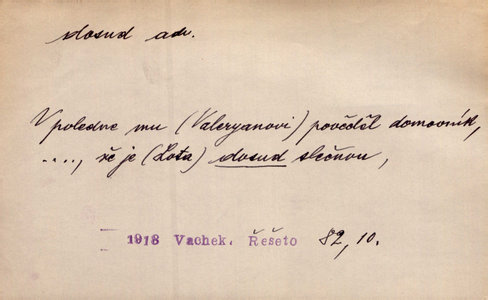 dosud adv.
V poledne mu (Valeryanovi) pověděl domovník,
...., že je (Lota) dosud slečnou,
1918 Vachek. Řešeto 82, 10.